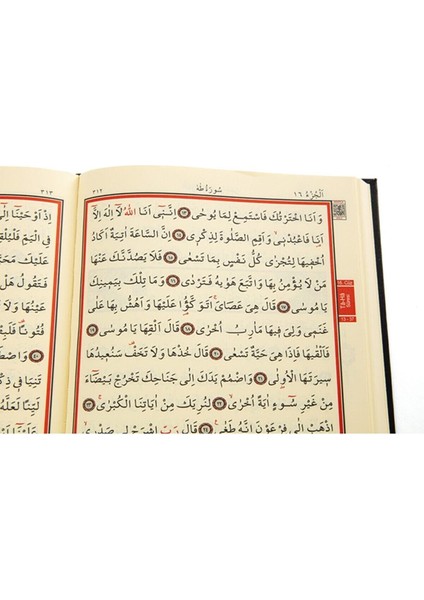 اَلْجُزْءُ ١٦
سُورَةُ طٰهٰ
٣١٢
وَاَنَا اخْتَرْتُكَ فَاسْتَمِعْ لِمَا يُوحٰى ﴿١٣﴾ اِنَّنٓي اَنَا اللّٰهُ لَٓا اِلٰهَ اِلَّٓا
اَنَا۬ فَاعْبُدْن۪ي وَاَقِمِ الصَّلٰوةَ لِذِكْر۪ي ﴿١٤﴾ اِنَّ السَّاعَةَ اٰتِيَةٌ اَكَادُ
اُخْف۪يهَا لِتُجْزٰى كُلُّ نَفْسٍ بِمَا تَسْعٰى ﴿١٥﴾ فَلَا يَصُدَّنَّكَ عَنْهَا
مَنْ لَا يُؤْمِنُ بِهَا وَاتَّبَعَ هَوٰيهُ فَتَرْدٰى ﴿١٦﴾ وَمَا تِلْكَ بِيَم۪ينِكَ
يَا مُوسٰى ﴿١٧﴾ قَالَ هِيَ عَصَايَۚ اَتَوَكَّؤُ۬ا عَلَيْهَا وَاَهُشُّ بِهَا عَلٰى
غَنَم۪ي وَلِيَ ف۪يهَا مَاٰرِبُ اُخْرٰى ﴿١٨﴾ قَالَ اَلْقِهَا يَا مُوسٰى ﴿١٩﴾
فَاَلْقٰيهَا فَاِذَا هِيَ حَيَّةٌ تَسْعٰى ﴿٢٠﴾ قَالَ خُذْهَا وَلَا تَخَفْ۠ سَنُع۪يدُهَا
س۪يرَتَهَا الْاُو۫لٰى ﴿٢١﴾ وَاضْمُمْ يَدَكَ اِلٰى جَنَاحِكَ تَخْرُجْ بَيْضَٓاءَ
مِنْ غَيْرِ سُٓوءٍ اٰيَةً اُخْرٰىۙ ﴿٢٢﴾ لِنُرِيَكَ مِنْ اٰيَاتِنَا الْكُبْرٰىۚ ﴿٢٣﴾
اِذْهَبْ اِلٰى فِرْعَوْنَ اِنَّهُ طَغٰى۟ ﴿٢٤﴾ قَالَ رَبِّ اشْرَحْ ل۪ي صَدْر۪يۙ
٣١٣
اِذْ اَوْحَيْنَٓا اِلٰٓى
فِي الْيَمِّ فَلْيُلْقِهِ
عَلَيْكَ مَحَ
فَتَقُولُ هَلْ
عَيْنُهَا وَلَا
فُتُونًا۠ فَلَبِثْ
وَاصْطَ
تَنِيَا ف۪ي ذِكْ
لَيِّنًا لَعَلَّهُ
عَلَيْنَٓا